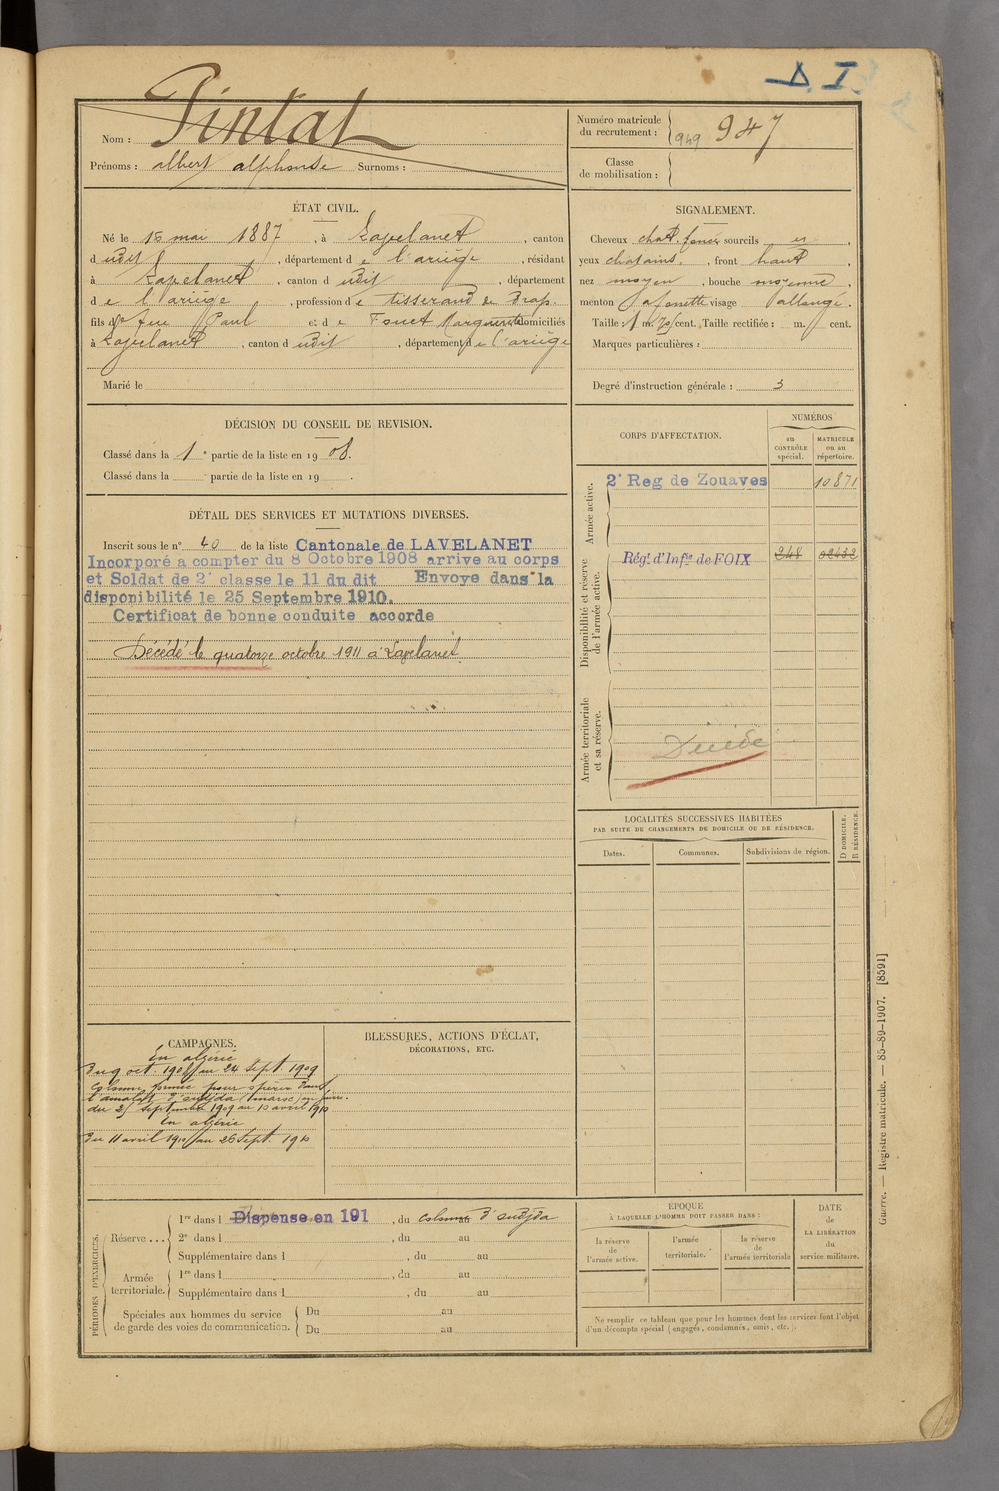 D. I.
Nom : Pintat
Prénoms : albert alphonse Surnoms :
Numéro matricule du recrutement : 949 947
Classe de mobilisation :
ÉTAT CIVIL.
Né le 15 mai 1887, à Lavelanet, canton
d udit, département d e l'ariège, résidant
à Lavelanet, canton d udit, département
d e l'ariège, profession d e tisserand de drap.
fils d feu Paul et d e Marguerite domiciliés
à Lavelanet, canton d udit, département d e l'ariège
Marié le
SIGNALEMENT.
Cheveux chat. foncé sourcils id,
yeux chatains, front haut,
nez moyen, bouche moyenne,
menton à fossette visage allongé.
Taille : 1 m. 70 cent. Taille rectifiée : m. cent.
Marques particulières :
Degré d'instruction générale : 3
DÉCISION DU CONSEIL DE REVISION.
Classé dans la 1e partie de la liste en 19 08.
Classé dans la partie de la liste en 19 .
DÉTAIL DES SERVICES ET MUTATIONS DIVERSES.
Inscrit sous le n° 40 de la liste Cantonale de LAVELANET
Incorporé a compter du 8 Octobre 1908 arrive au corps
et Soldat de 2e classe le 11 du dit Envoye dans la
disponibilité le 25 Septembre 1910.
Certificat de bonne conduite accorde
Décédé le quatorze octobre 1911 à Lavelanet
CORPS D'AFFECTATION.
NUMÉROS
au CONTRÔLE spécial.
MATRICULE ou au répertoire.
Armée active.
2e Reg de Zouaves 10871
Disponibilité et réserve de l'armée active.
Régt. d'Infie de FOIX 248 02432
Armée territoriale et sa réserve.
Décédé
LOCALITÉS SUCCESSIVES HABITÉES
PAR SUITE DE CHANGEMENTS DE DOMICILE OU DE RÉSIDENCE.
Dates. Communes. Subdivisions de région. D DOMICILE. R RÉSIDENCE.
CAMPAGNES.
En algérie
Du 9 oct. 1908 au 24 Sept. 1909
Colonne formée pour opérer dans
l'amalat d'oudjda (maroc) en guerre.
du 25 septembre 1909 au 10 avril 1910
En algérie
Du 11 avril 1910 au 26 Sept. 1910
BLESSURES, ACTIONS D'ÉCLAT,
DÉCORATIONS, ETC.
PÉRIODES D'EXERCICES.
Réserve ...
1re dans l Dispense en 191, du colonne d'oudjda
2e dans l , du au
Supplémentaire dans l , du au
Armée territoriale.
1re dans l , du au
Supplémentaire dans l , du au
Spéciales aux hommes du service de garde des voies de communication.
Du au
Du au
ÉPOQUE
À LAQUELLE L'HOMME DOIT PASSER DANS :
la réserve de l'armée active.
l'armée territoriale.
la réserve de l'armée territoriale
DATE de LA LIBÉRATION du service militaire.
Ne remplir ce tableau que pour les hommes dont les services font l'objet
d'un décompte spécial (engagés, condamnés, omis, etc.).
Guerre. — Registre matricule. — 85-89-1907. [8591]